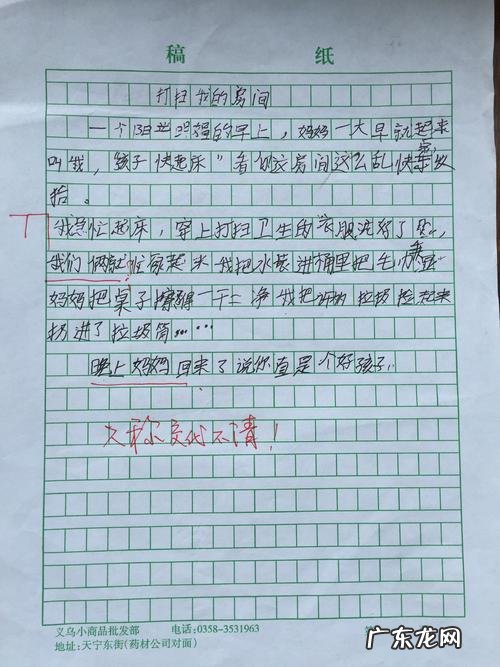 稿 纸
打扫我的房间
一个阳光明媚的早上，妈妈一大早就起来
叫我，孩子快起床"看你这房间这么乱快来收
拾。
我急忙起床，穿上打扫卫生的衣服洗好了
我们俩就忙家起来我把水装进桶里把毛
妈妈把桌子擦得一干二净我把 垃圾捡起来
扔进了垃圾筒……
晚上妈妈回来了说你直是个好孩子.
人称交代不清！
义乌小商品批发部 电话:0358-3531963
地址:天宁东街(药材公司对面)
广东龙网